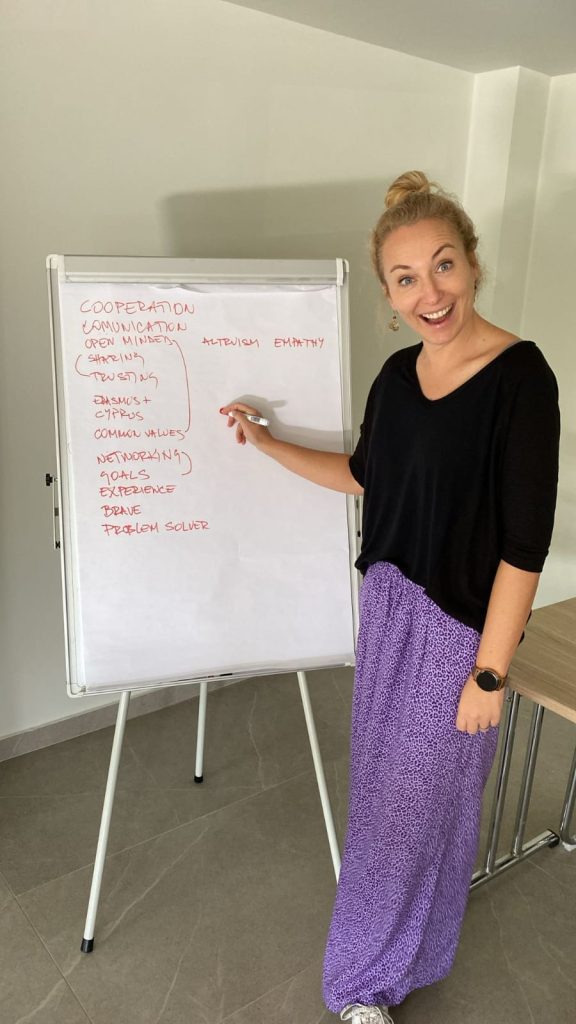 COOPERATION
COMUNICATION
OPEN MINDED
ALTRUISM EMPATHY
SHARING
TRUSTING
ERASMUS+
CYPRUS
COMMON VALUES
NETWORKING
GOALS
EXPERIENCE
BRAVE
PROBLEM SOLVER